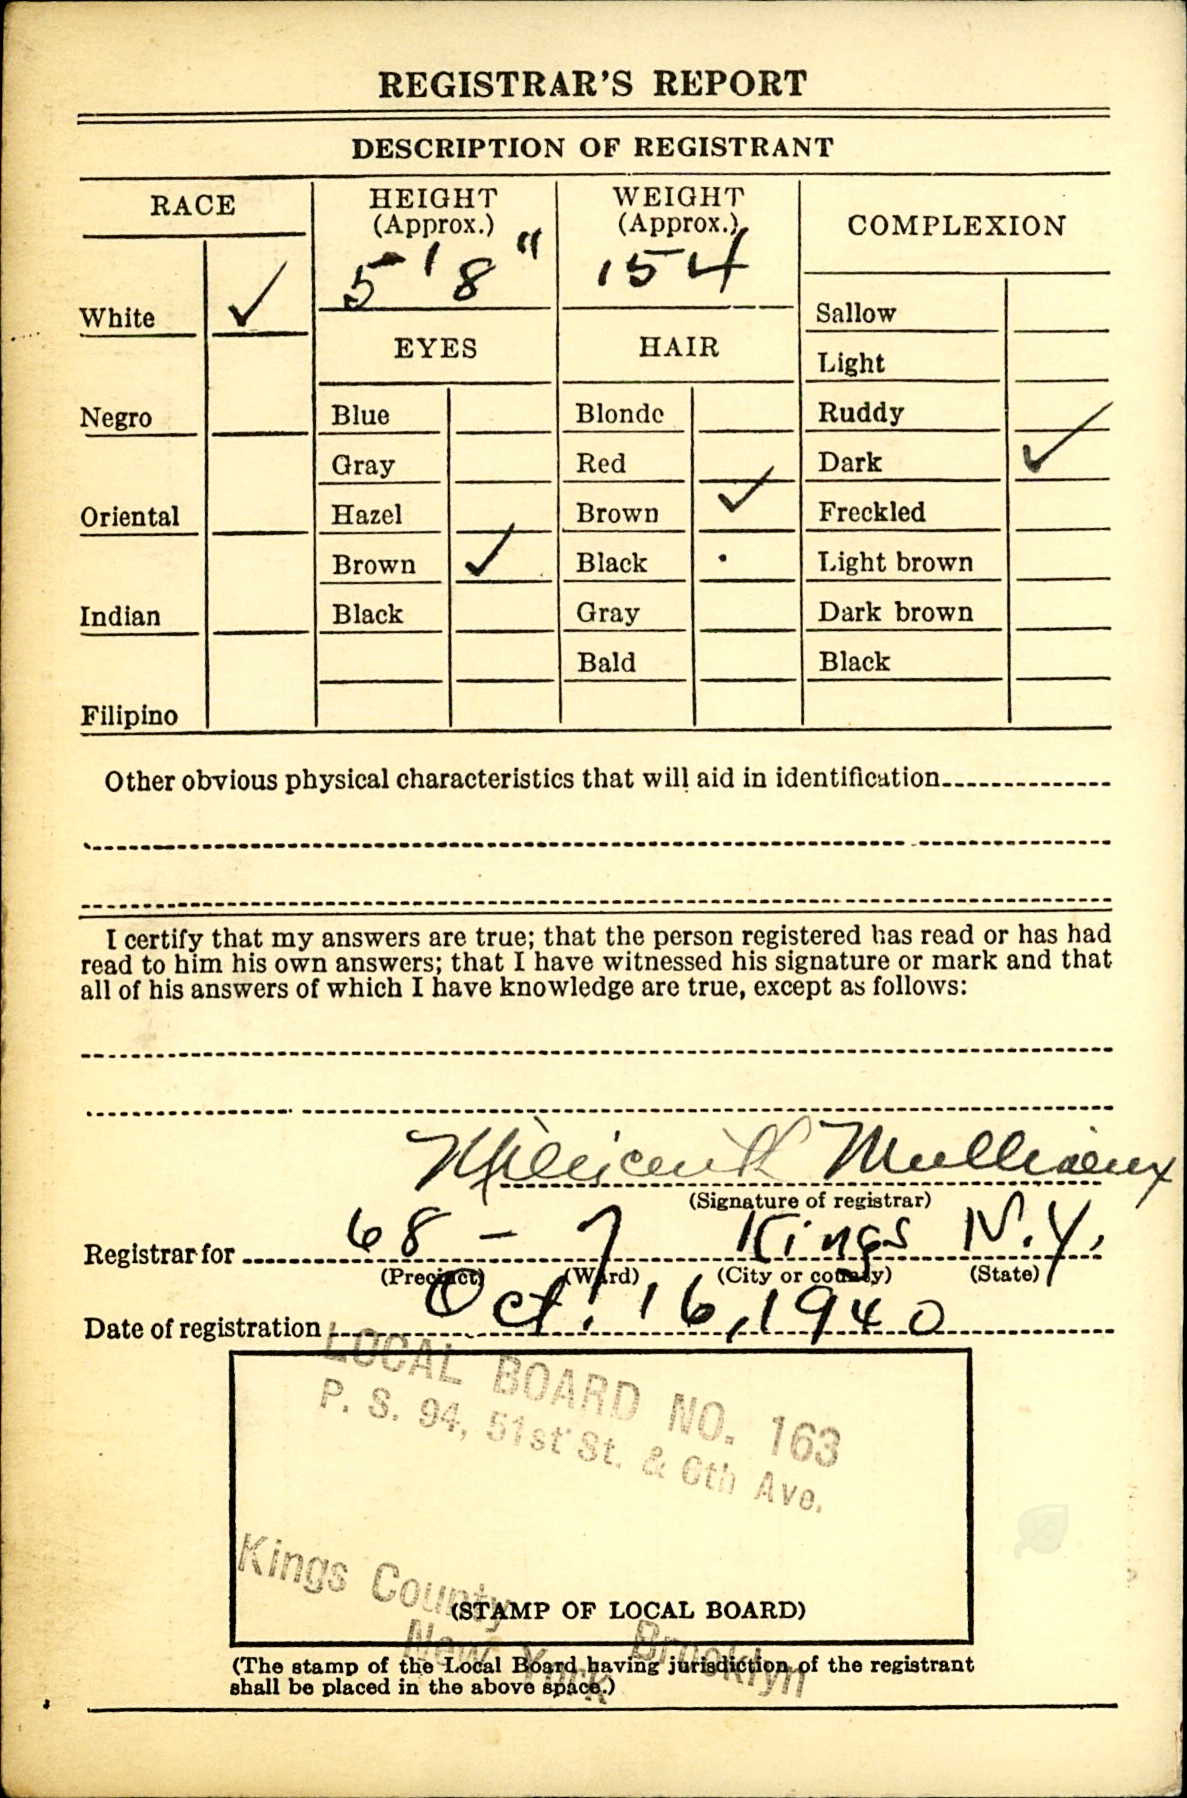 REGISTRAR'S REPORT
DESCRIPTION OF REGISTRANT
RACE
HEIGHT
(Approx.)
WEIGHT
(Approx.)
COMPLEXION
5' 8"
154
White ✓
Sallow
EYES
HAIR
Light
Negro
Blue
Blonde
Ruddy
Gray
Red
Dark ✓
Oriental
Hazel
Brown ✓
Freckled
Brown ✓
Black
Light brown
Indian
Black
Gray
Dark brown
Bald
Black
Filipino
Other obvious physical characteristics that will aid in identification
I certify that my answers are true; that the person registered has read or has had
read to him his own answers; that I have witnessed his signature or mark and that
all of his answers of which I have knowledge are true, except as follows:
(Signature of registrar)
Registrar for 68 - 7 Kings N.Y.
(Precinct) (Ward) (City or county) (State)
Date of registration Oct. 16, 1940
LOCAL BOARD NO. 163
P. S. 94, 51st St. & 6th Ave.
Kings County
Brooklyn
New York
(STAMP OF LOCAL BOARD)
(The stamp of the Local Board having jurisdiction of the registrant
shall be placed in the above space.)